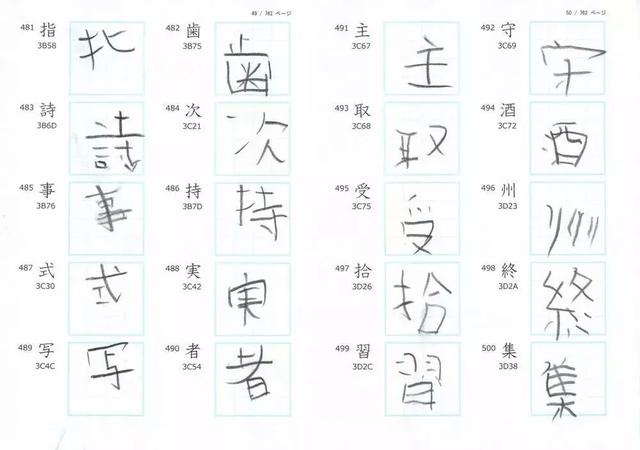 49 / 762 ページ
481 指 482 歯
3B58 3B75
483 詩 484 次
3B6D 3C21
485 事 486 持
3B76 3B7D
487 式 488 実
3C30 3C42
489 写 490 者
3C4C 3C54
歯
次
事 持
式 実
写 者
50 / 762 ページ
491 主 492 守
3C67 3C69
493 取 494 酒
3C68 3C72
495 受 496 州
3C75 3D23
497 拾 498 終
3D26 3D2A
499 習 500 集
3D2C 3D38
主 守
取 酒
受 州
拾 終
習 集